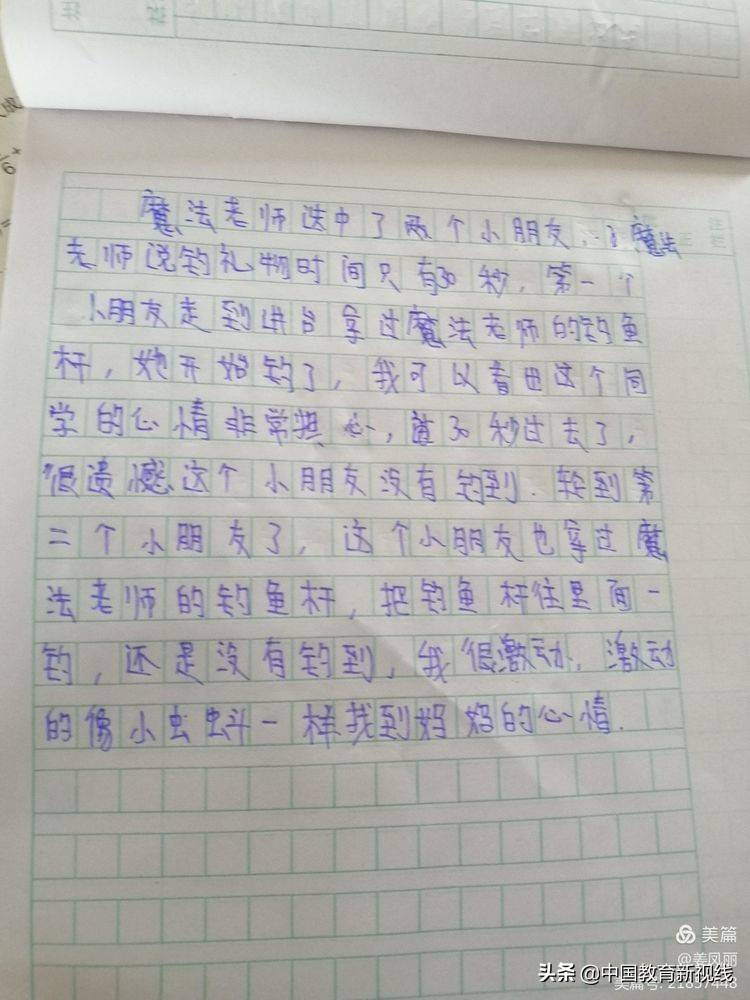 魔法老师选中了两个小朋友，魔法
老师说钓礼物时间只有30秒，第一个
小朋友走到讲台拿过魔法老师的钓鱼
杆，她开始钓了，我可以看出这个同
学的心情非常担心，首30秒过去了，
很遗憾这个小朋友没有钓到.轮到第
二个小朋友了，这个小朋友也拿过魔
法老师的钓鱼杆，把钓鱼杆往里面一
钓，还是没有钓到，我很激动，激动
的像小虫蚪一样找到妈妈的心情.
美篇
@姜凤丽
头条 @中国教育新视线
美篇号: 21857448